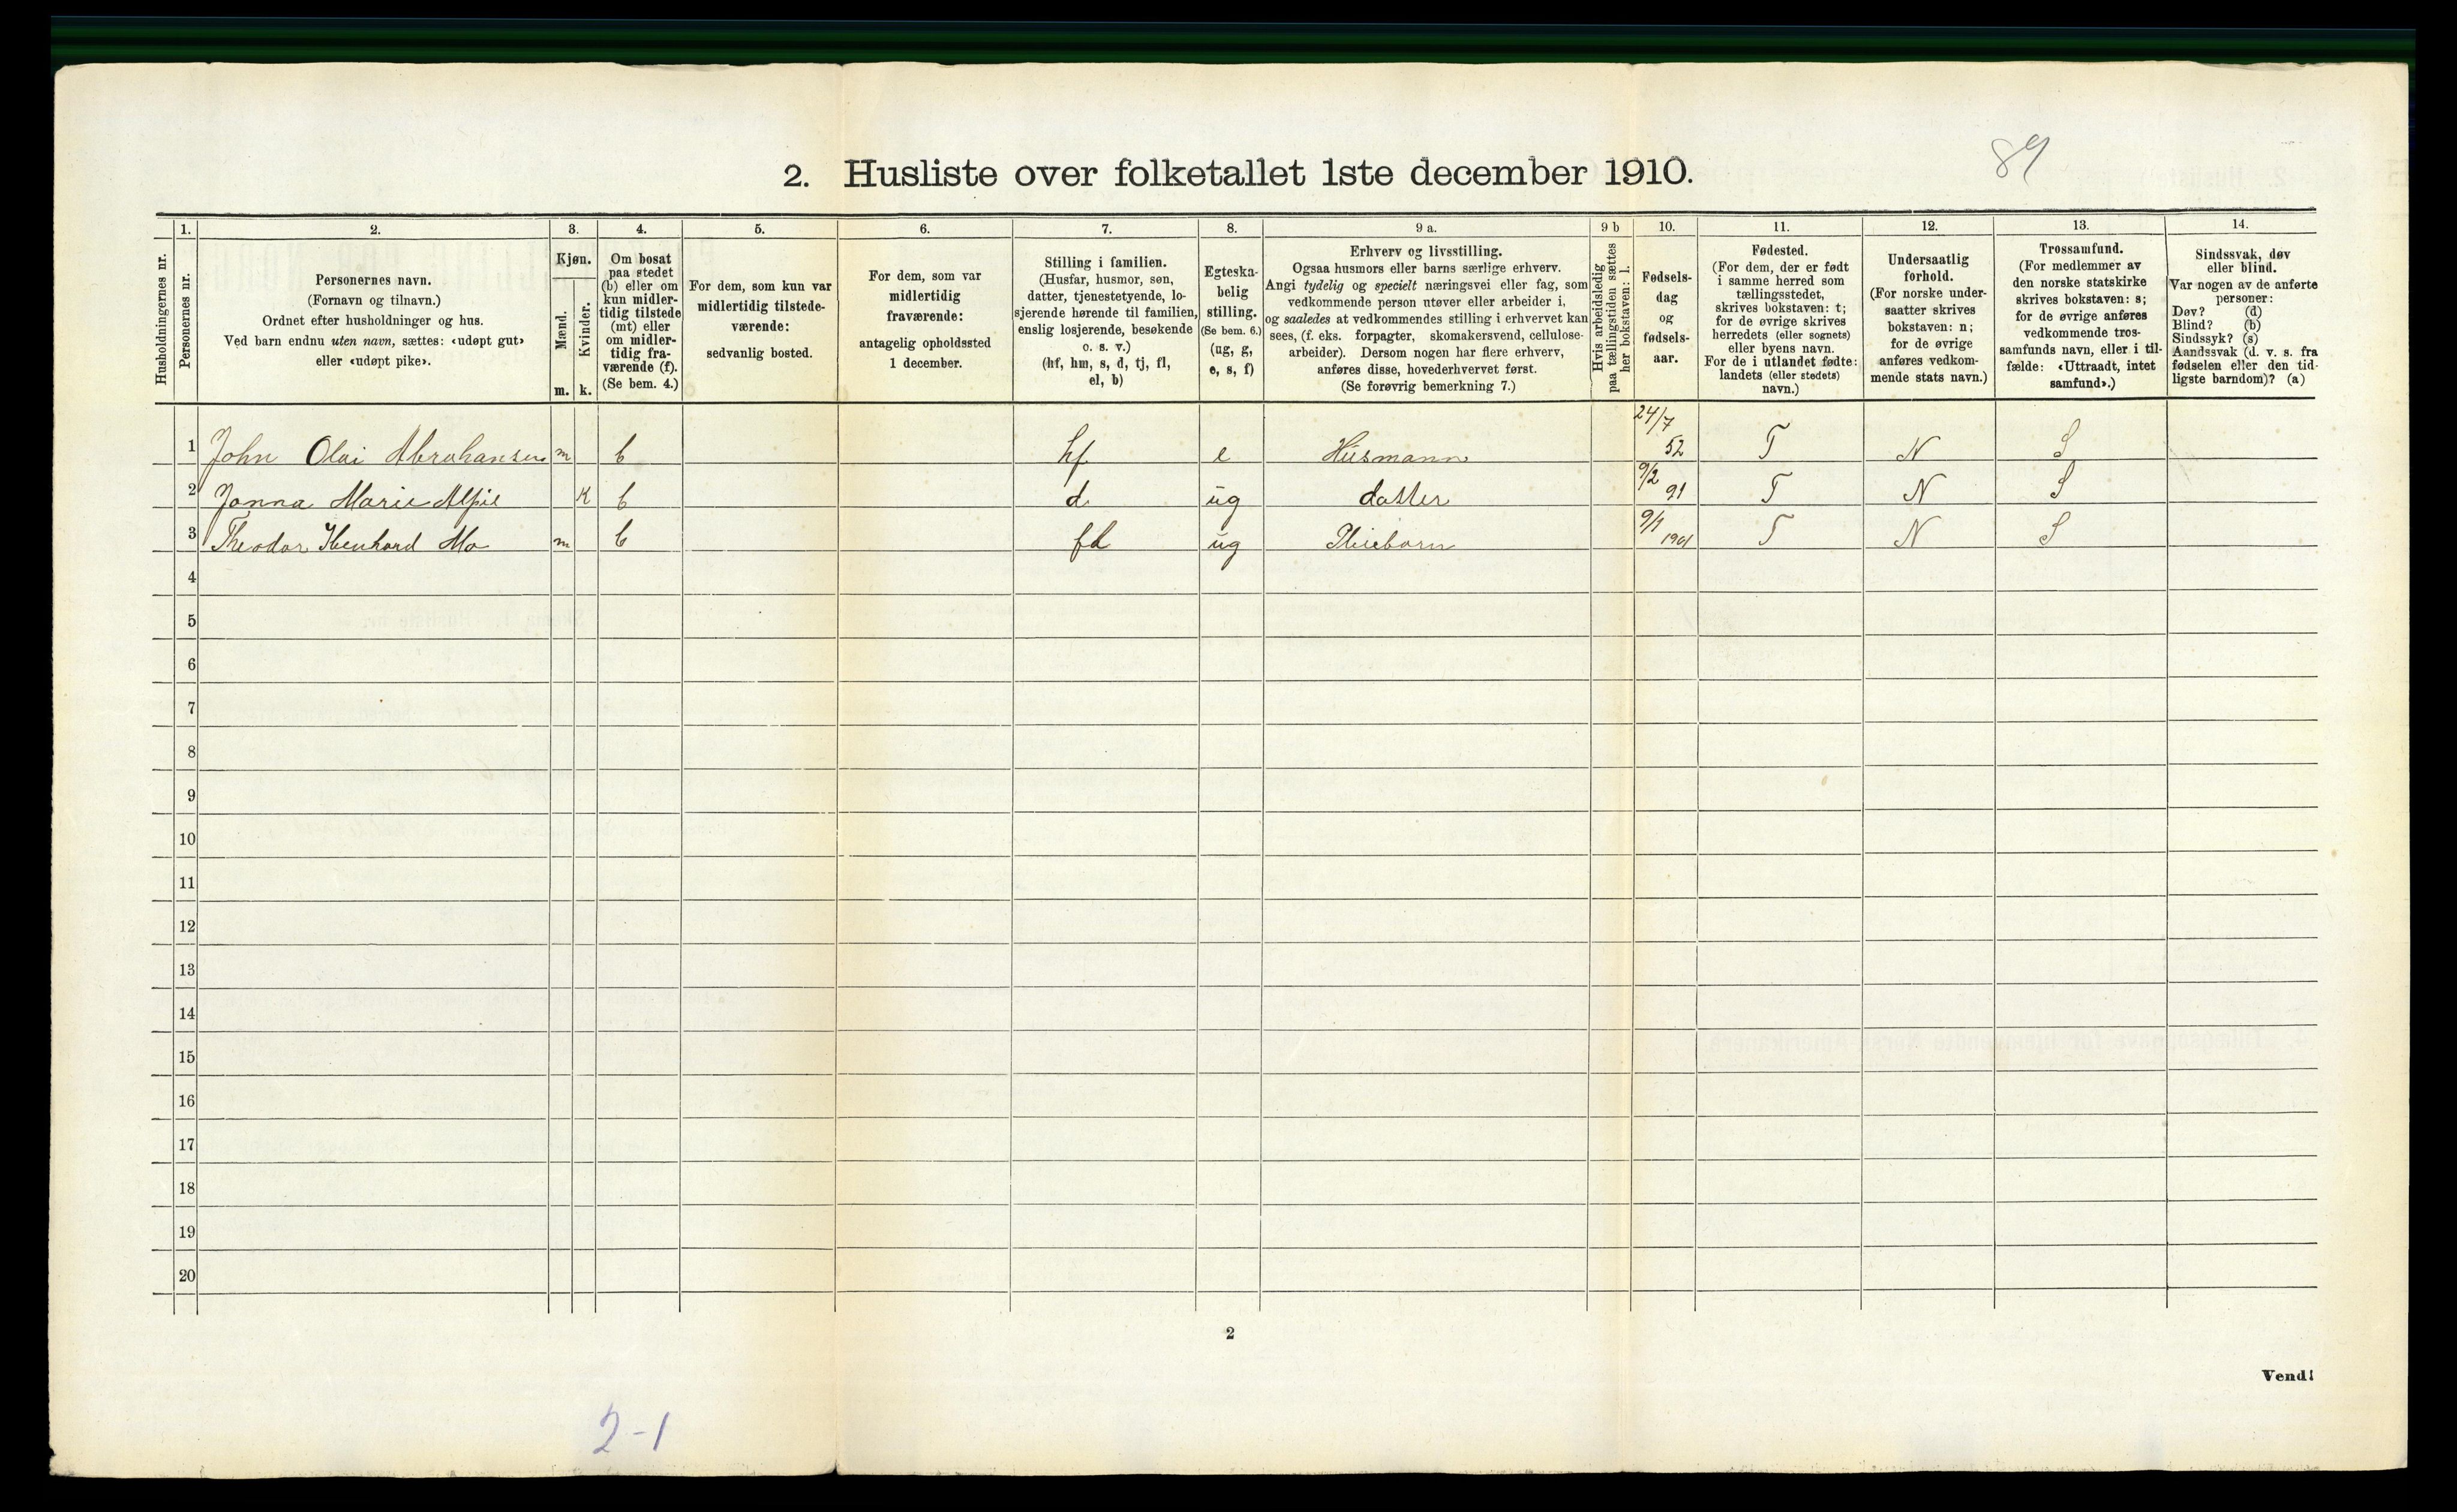 89
2. Husliste over folketallet 1ste december 1910.
Husholdningernes nr.
1.
Personernes nr.
2.
Personernes navn.
(Fornavn og tilnavn.)
Ordnet efter husholdninger og hus.
Ved barn endnu uten navn, sættes: «udøpt gut»
eller «udøpt pike».
3.
Kjøn.
Mænd.
Kvinder.
m. k.
4.
Om bosat
paa stedet
(b) eller om
kun midler-
tidig tilstede
(mt) eller
om midler-
tidig fra-
værende (f).
(Se bem. 4.)
5.
For dem, som kun var
midlertidig tilstede-
værende:
sedvanlig bosted.
6.
For dem, som var
midlertidig
fraværende:
antagelig opholdssted
1 december.
7.
Stilling i familien.
(Husfar, husmor, søn,
datter, tjenestetyende, lo-
sjerende hørende til familien,
enslig losjerende, besøkende
o. s. v.)
(hf, hm, s, d, tj, fl,
el, b)
8.
Egteska-
belig
stilling.
(Se bem. 6.)
(ug, g,
e, s, f)
9 a.
Erhverv og livsstilling.
Ogsaa husmors eller barns særlige erhverv.
Angi tydelig og specielt næringsvei eller fag, som
vedkommende person utøver eller arbeider i,
og saaledes at vedkommendes stilling i erhvervet kan
sees, (f. eks. forpagter, skomakersvend, cellulose-
arbeider). Dersom nogen har flere erhverv,
anføres disse, hovederhvervet først.
(Se forøvrig bemerkning 7.)
9 b
Hvis arbeidsledig
paa tællingstiden sættes
her bokstaven: l.
10.
Fødsels-
dag
og
fødsels-
aar.
11.
Fødested.
(For dem, der er født
i samme herred som
tællingsstedet,
skrives bokstaven: t;
for de øvrige skrives
herredets (eller sognets)
eller byens navn.
For de i utlandet fødte:
landets (eller stedets)
navn.)
12.
Undersaatlig
forhold.
(For norske under-
saatter skrives
bokstaven: n;
for de øvrige
anføres vedkom-
mende stats navn.)
13.
Trossamfund.
(For medlemmer av
den norske statskirke
skrives bokstaven: s;
for de øvrige anføres
vedkommende tros-
samfunds navn, eller i til-
fælde: «Uttraadt, intet
samfund».)
14.
Sindssvak, døv
eller blind.
Var nogen av de anførte
personer:
Døv? (d)
Blind? (b)
Sindssyk? (s)
Aandssvak (d. v. s. fra
fødselen eller den tid-
ligste barndom)? (a)
1 John Olai Abrahansen m b hf e Husmann 24/7 52 T N S
2 Jonna Marie K b d ug datter 9/2 91 T N S
3 Theodor Mo m b fl ug 9/1 1901 T N S
4
5
6
7
8
9
10
11
12
13
14
15
16
17
18
19
20
2
Vend!
2-1